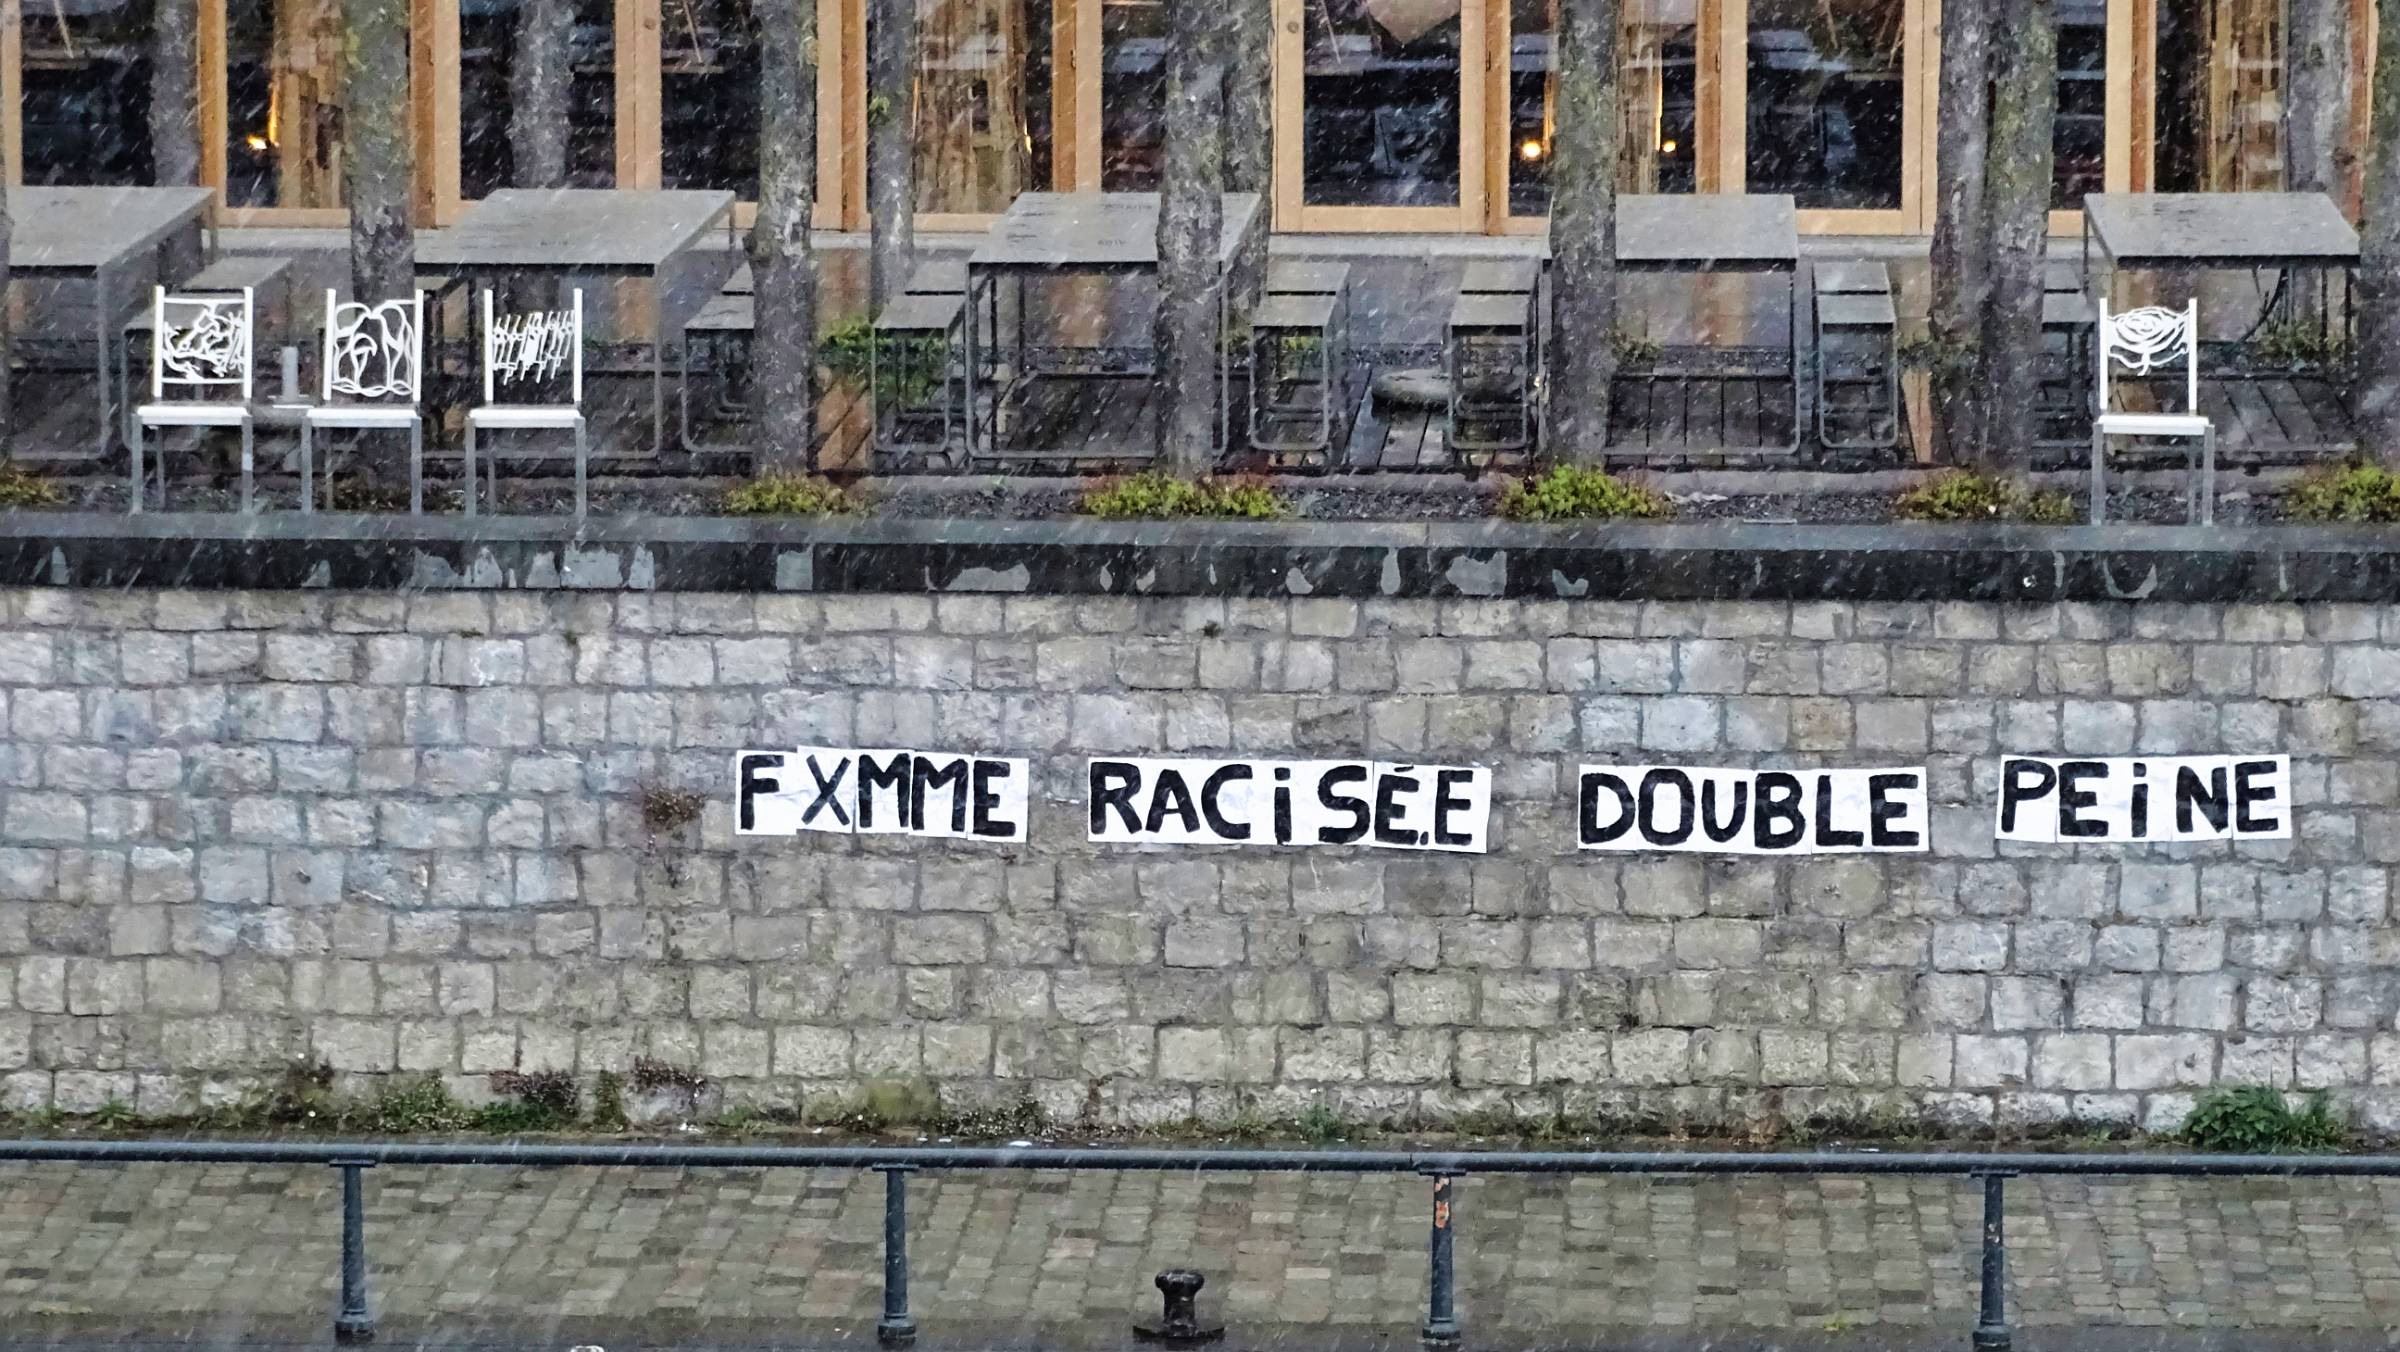 FXMME RACiSÉ.E DOUBLE PEiNE